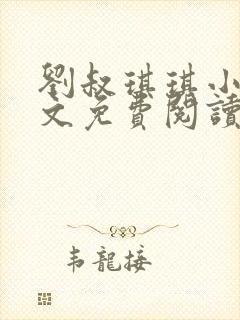 劉叔琪琪小
文免費閱讀
韦龍接